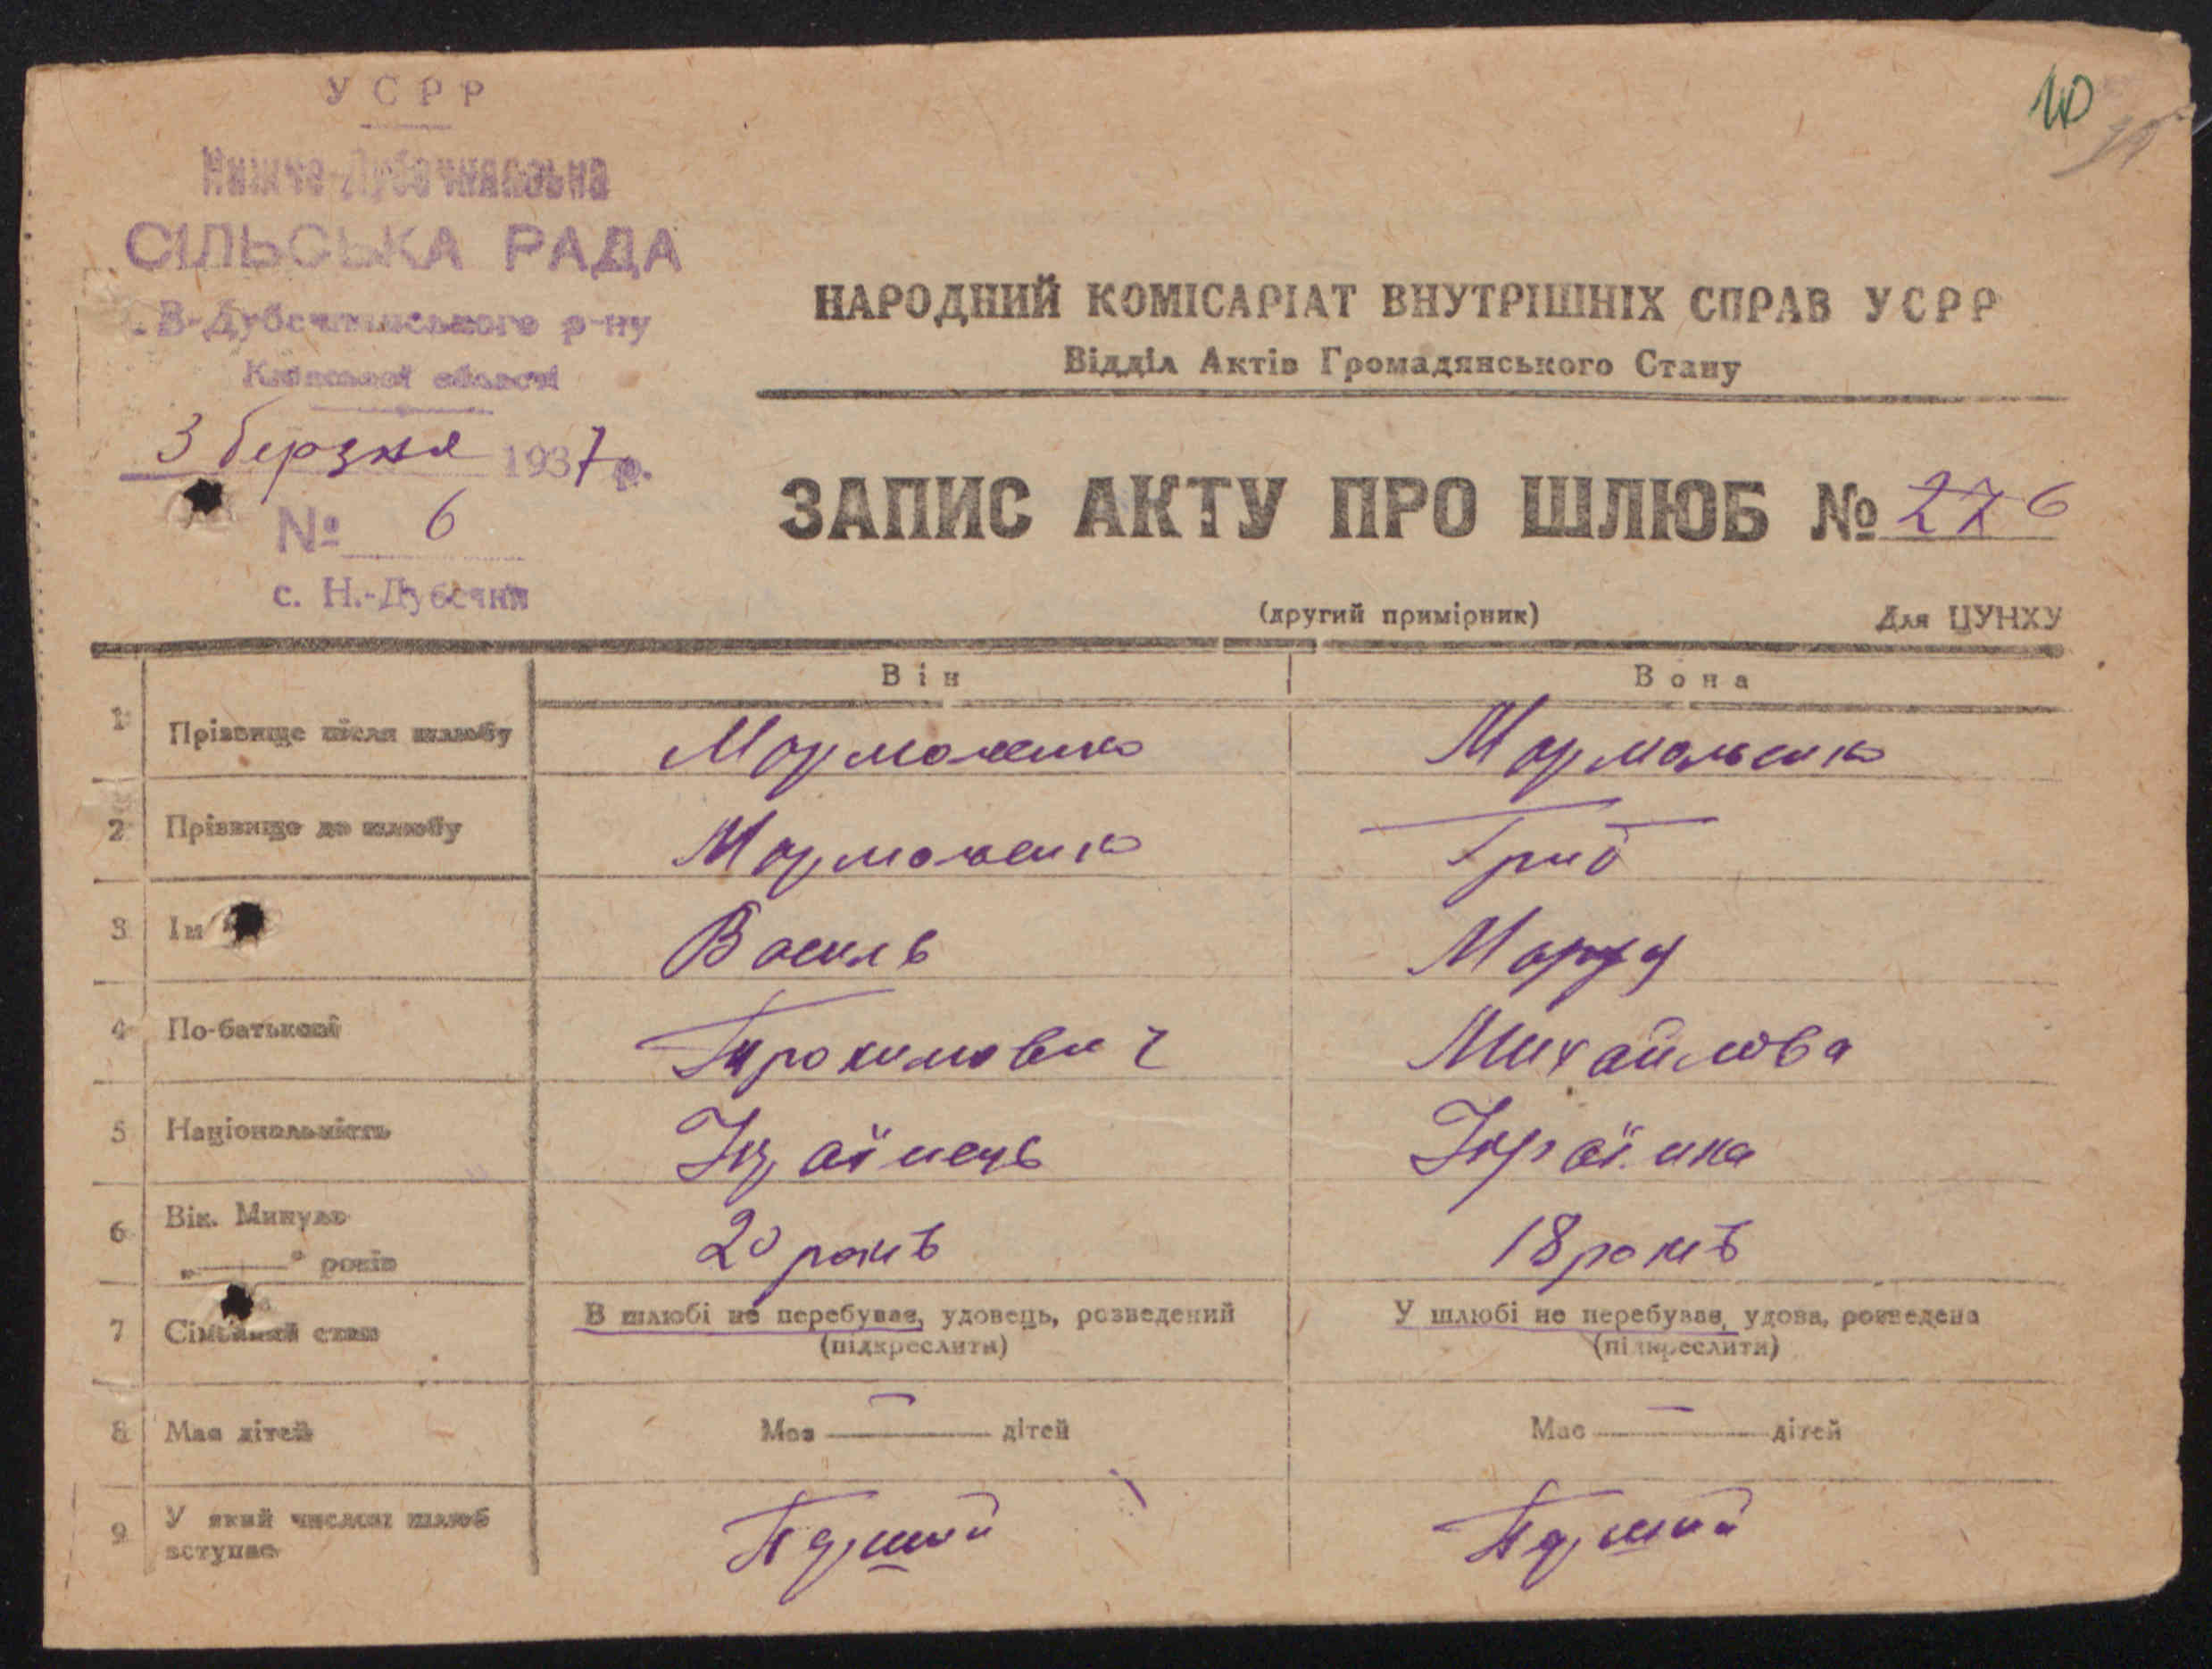 У С Р Р
Нижче-Дубечнянська
СІЛЬСЬКА РАДА
В-Дубечнянського р-ну
Київської області
3 березня 1937 р.
№ 6
с. Н.-Дубечня
10
НАРОДНИЙ КОМІСАРІАТ ВНУТРІШНІХ СПРАВ УСРР
Відділ Актів Громадянського Стану
ЗАПИС АКТУ ПРО ШЛЮБ № 276
(другий примірник) Для ЦУНХУ
Він Вона
1 Прізвище після шлюбу Марможенко Марможенко
2 Прізвище до шлюбу Марможенко Гриб
3 Ім Василь Маруся
4 По-батькові Трохимович Михайлова
5 Національність Українець Українка
6 Вік. Минуло 20 років 18 років
„ “ років
7 Сімейний стан В шлюбі не перебував, удовець, розведений У шлюбі не перебувала, удова, розведена
(підкреслити) (підкреслити)
8 Має дітей Має — дітей Має — дітей
9 У який числом шлюб вступає Перший Перший